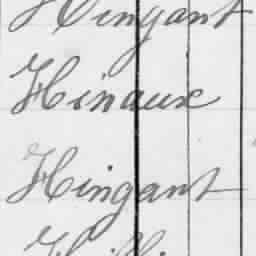 Hingant
Hinaux
Hingant